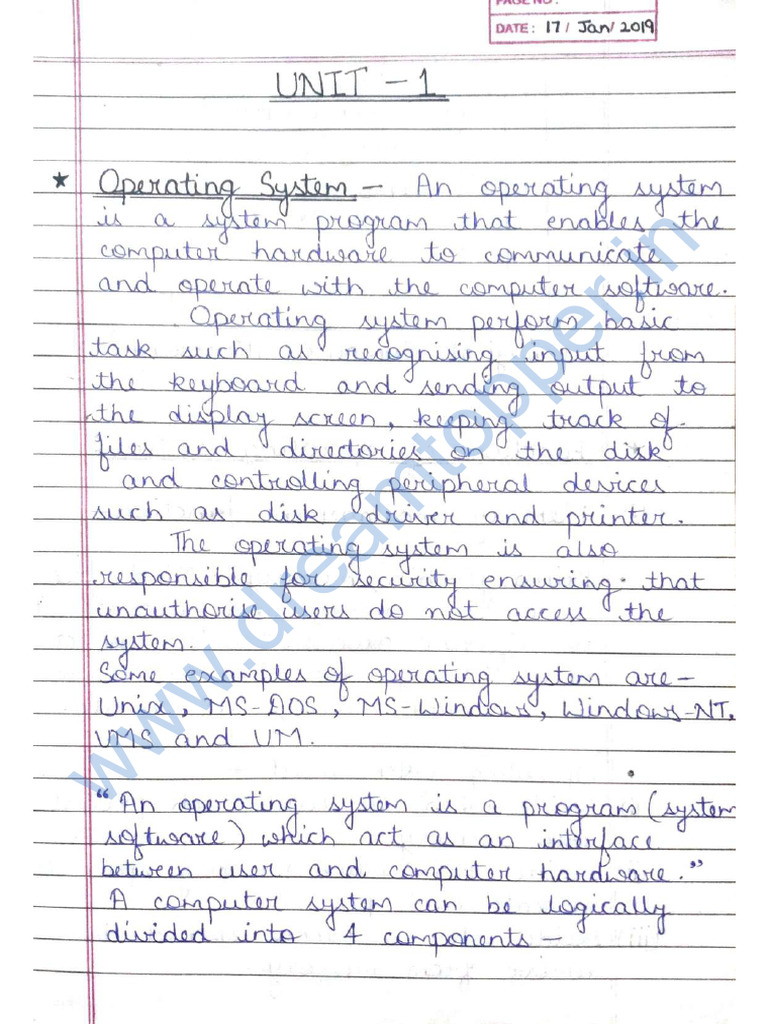 PAGE NO:
DATE: 17/ Jan/ 2019
UNIT - 1
★ Operating System - An operating system
is a system program that enables the
computer hardware to communicate
and operate with the computer software.
Operating system perform basic
task such as recognising input from
the keyboard and sending output to
the display screen, keeping track of
files and directories on the disk
and controlling peripheral devices
such as disk driver and printer.
The operating system is also
responsible for security ensuring that
unauthorise users do not access the
system.
Some examples of operating system are-
Unix, MS-DOS, MS-Windows, Windows-NT,
VMS and VM.
“An operating system is a program (system
software) which act as an interface
between user and computer hardware.”
A computer system can be logically
divided into 4 components -
www.dreamtopper.in